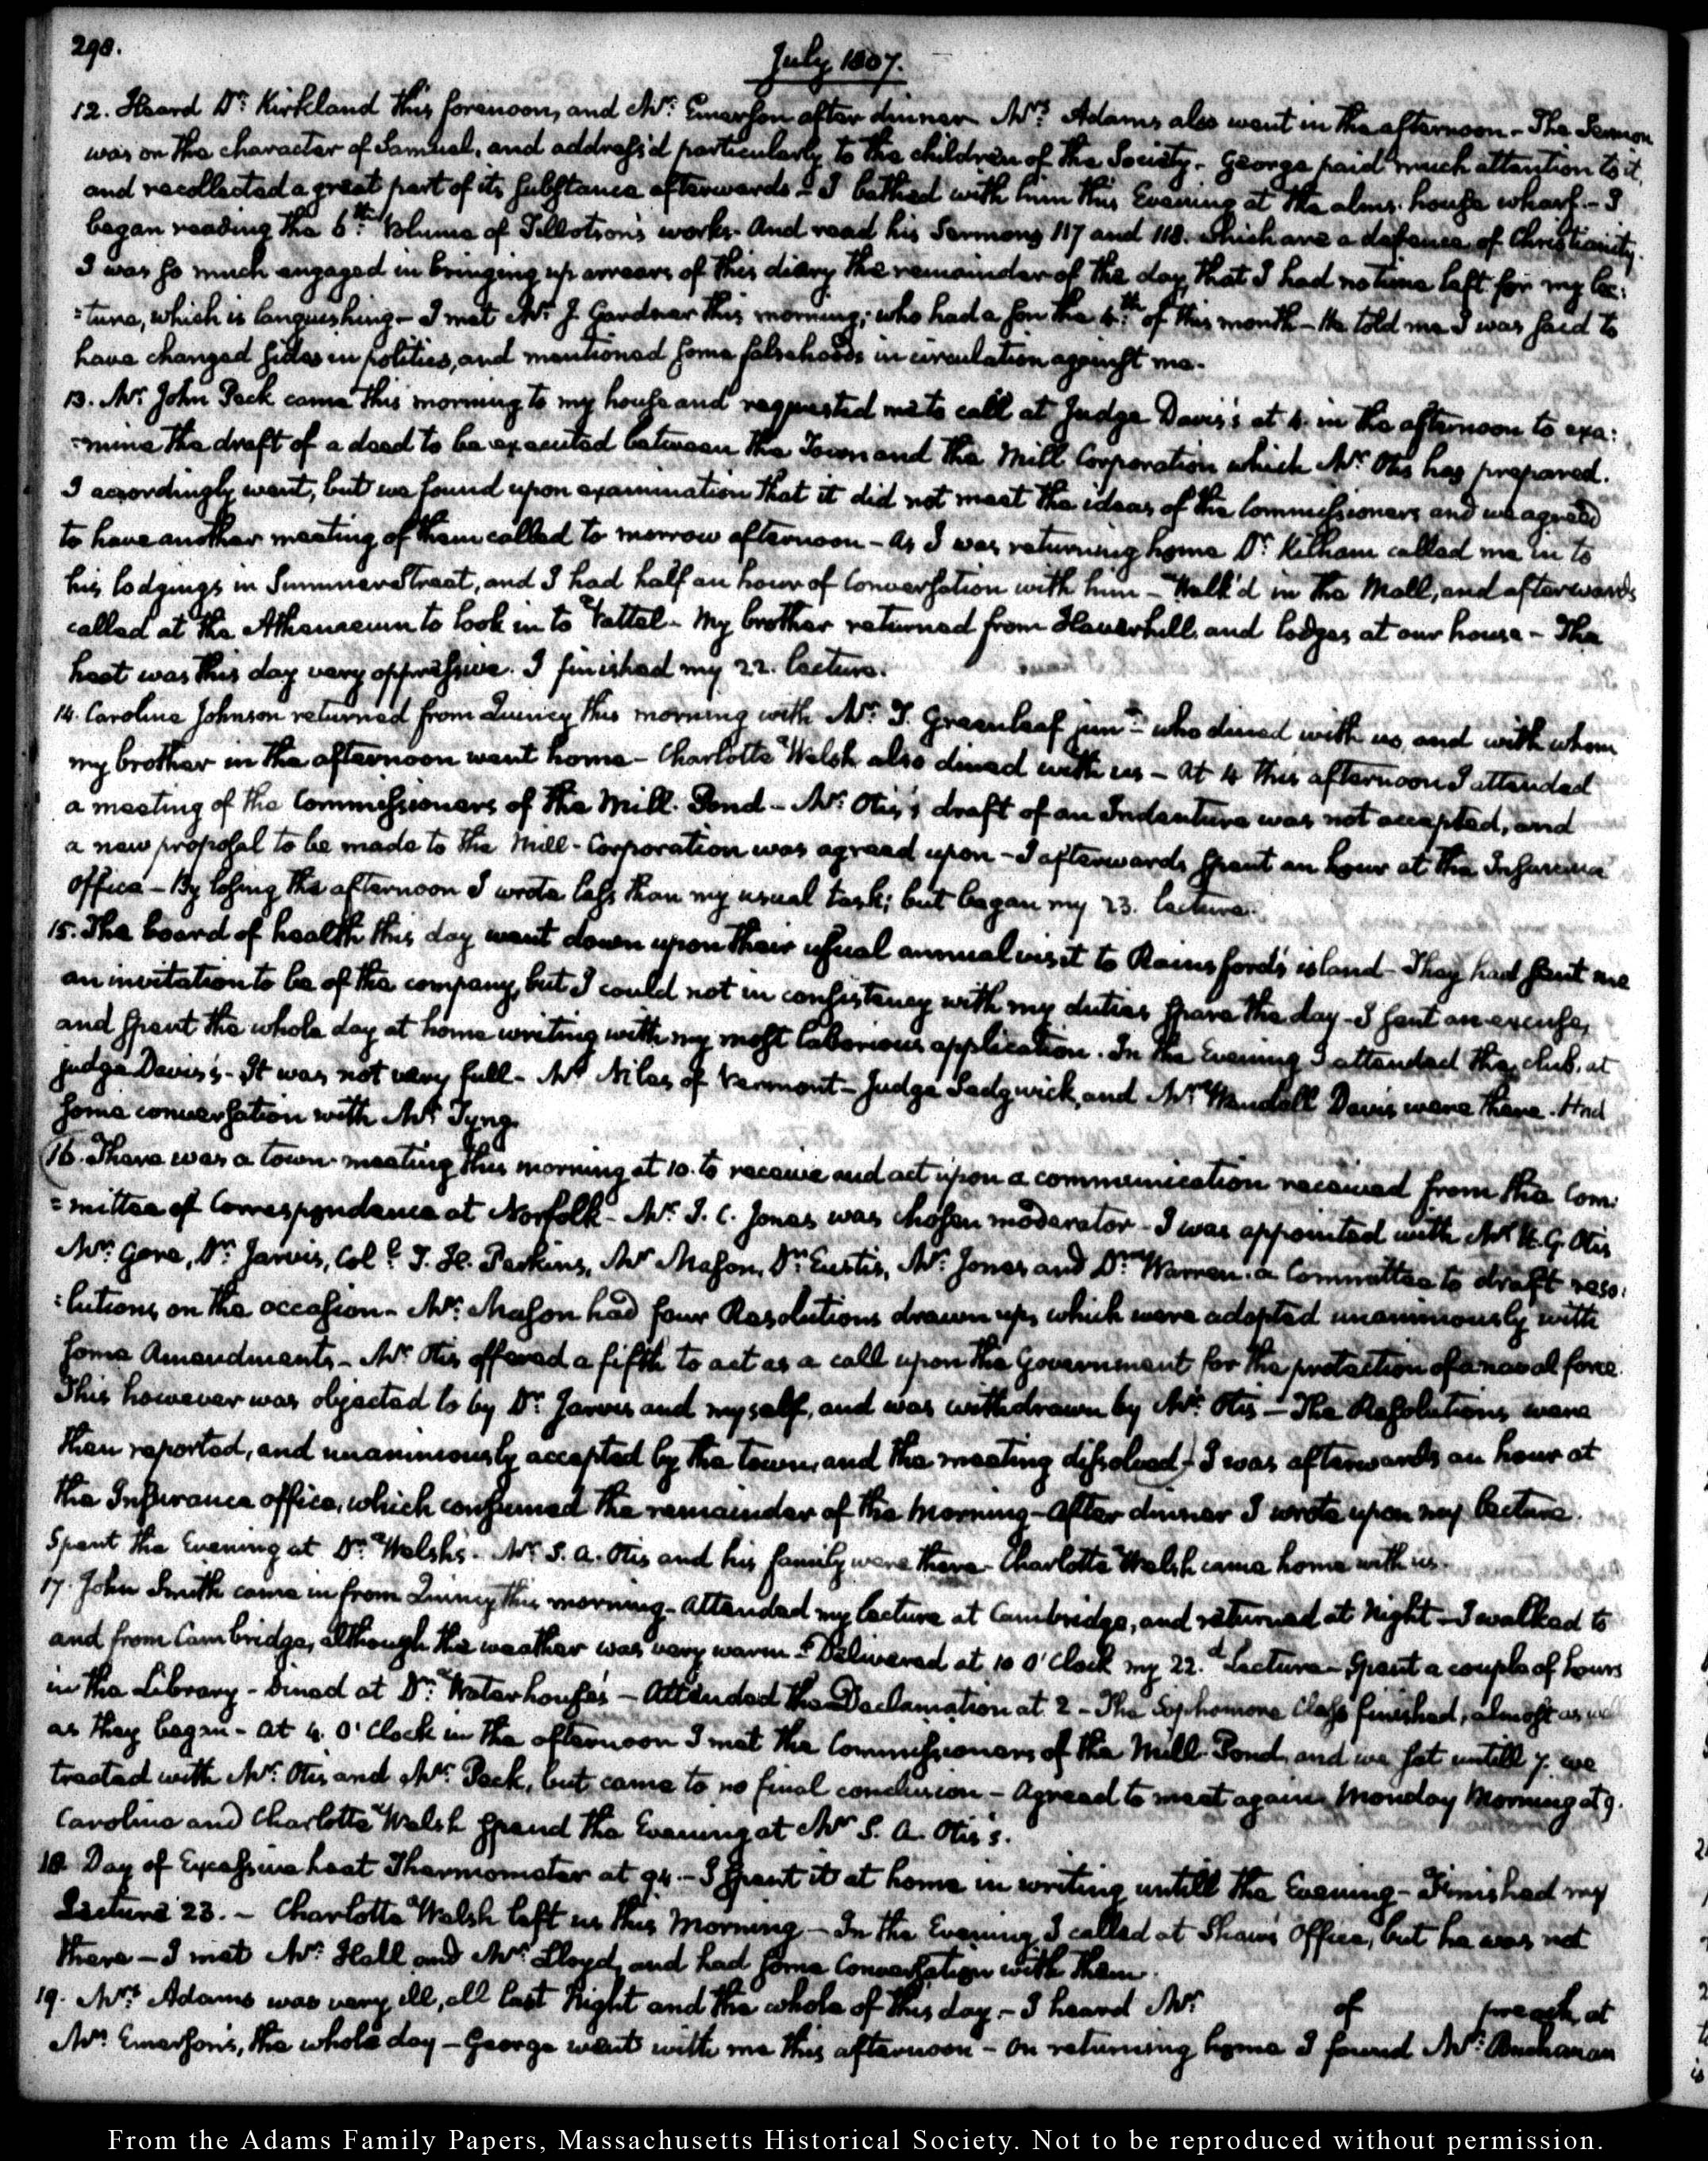 298.
July 1807.
12. Heard Dr. Kirkland this forenoon, and Mr. Emerson after dinner. Mrs. Adams also went in the afternoon - The Sermon
was on the character of Samuel, and address'd particularly to the children of the Society. George paid much attention to it,
and recollected a great part of its substance afterwards - I bathed with him this Evening at the alms-house wharf. - I
began reading the 6th. Volume of Tillotson's works. And read his Sermons 117 and 118. which are a defence of Christianity.
I was so much engaged in bringing up arrears of this diary the remainder of the day, that I had no time left for my lec:
:ture, which is languishing - I met Mr. J. Gardner this morning; who had a son the 4th. of this month - He told me I was said to
have changed sides in politics, and mentioned some falsehoods in circulation against me.
13. Mr. John Peck came this morning to my house and requested me to call at Judge Davis's at 4. in the afternoon to exa:
:mine the draft of a deed to be executed between the Town and the Mill Corporation which Mr. Otis has prepared.
I accordingly went, but we found upon examination that it did not meet the ideas of the Commissioners and we agreed
to have another meeting of them called to morrow afternoon - As I was returning home Dr. Kilham called me in to
his lodgings in Summer Street, and I had half an hour of Conversation with him - Walk'd in the Mall, and afterwards
called at the Athenaeum to look in to Vattel - My brother returned from Haverhill, and lodges at our house - The
heat was this day very oppressive. I finished my 22. lecture.
14. Caroline Johnson returned from Quincy this morning with Mr. T. Greenleaf junr. who dined with us, and with whom
my brother in the afternoon went home - Charlotte Welsh also dined with us - At 4 this afternoon I attended
a meeting of the Commissioners of the Mill-Pond - Mr. Otis's draft of an Indenture was not accepted, and
a new proposal to be made to the Mill-Corporation was agreed upon - I afterwards spent an hour at the Insurance
office - By losing the afternoon I wrote less than my usual task; but began my 23. lecture.
15. The board of health this day went down upon their usual annual visit to Rainsford's island - They had sent me
an invitation to be of the company, but I could not in consistency with my duties spare the day - I sent an excuse,
and spent the whole day at home writing with my most laborious application. In the Evening I attended the club, at
judge Davis's - It was not very full - Mr. Niles of Vermont - Judge Sedgwick, and Mr. Wendell Davis were there. Had
some conversation with Mr. Tyng.
(16. There was a town-meeting this morning at 10. to receive and act upon a communication received from the Com:
:mittee of Correspondence at Norfolk - Mr. J. C. Jones was chosen moderator - I was appointed with Mr. H. G. Otis
Mr. Gore, Dr. Jarvis, Coll. T. H. Perkins, Mr. Mason, Dr. Eustis, Mr. Jones and Dr. Warren. a Committee to draft reso:
:lutions on the occasion - Mr. Mason had four Resolutions drawn up, which were adopted unanimously with
some Amendments - Mr. Otis offered a fifth to act as a call upon the Government for the protection of a naval force.
This however was objected to by Dr. Jarvis and myself, and was withdrawn by Mr. Otis - The Resolutions were
then reported, and unanimously accepted by the town, and the meeting dissolved) I was afterwards an hour at
the Insurance office, which consumed the remainder of the Morning - After dinner I wrote upon my lecture.
Spent the Evening at Dr. Welsh's. Mr. S. A. Otis and his family were there - Charlotte Welsh came home with us.
17. John Smith came in from Quincy this morning - Attended my lecture at Cambridge, and returned at Night - I walked to
and from Cambridge, although the weather was very warm - Delivered at 10 O'Clock my 22.d Lecture - Spent a couple of hours
in the Library - Dined at Dr. Waterhouse's - Attended the Declamation at 2 - The Sophomore Class finished, almost as well
as they began - At 4. O'Clock in the afternoon I met the Commissioners of the Mill-Pond, and we sat untill 7. we
treated with Mr. Otis and Mr. Peck, but came to no final conclusion - Agreed to meet again Monday Morning at 9.
Caroline and Charlotte Welsh spend the Evening at Mr. S. A. Otis's.
18. Day of Excessive heat Thermometer at 94. - I spent it at home in writing untill the Evening - Finished my
Lecture 23. - Charlotte Welsh left us this Morning - In the Evening I called at Shaw's Office, but he was not
there - I met Mr. Hall and Mr. Lloyd, and had some Conversation with them.
19. Mrs. Adams was very ill, all last Night and the whole of this day - I heard Mr. of preach at
Mr. Emerson's, the whole day - George went with me this afternoon - On returning home I found Mr. Buchanan
From the Adams Family Papers, Massachusetts Historical Society. Not to be reproduced without permission.